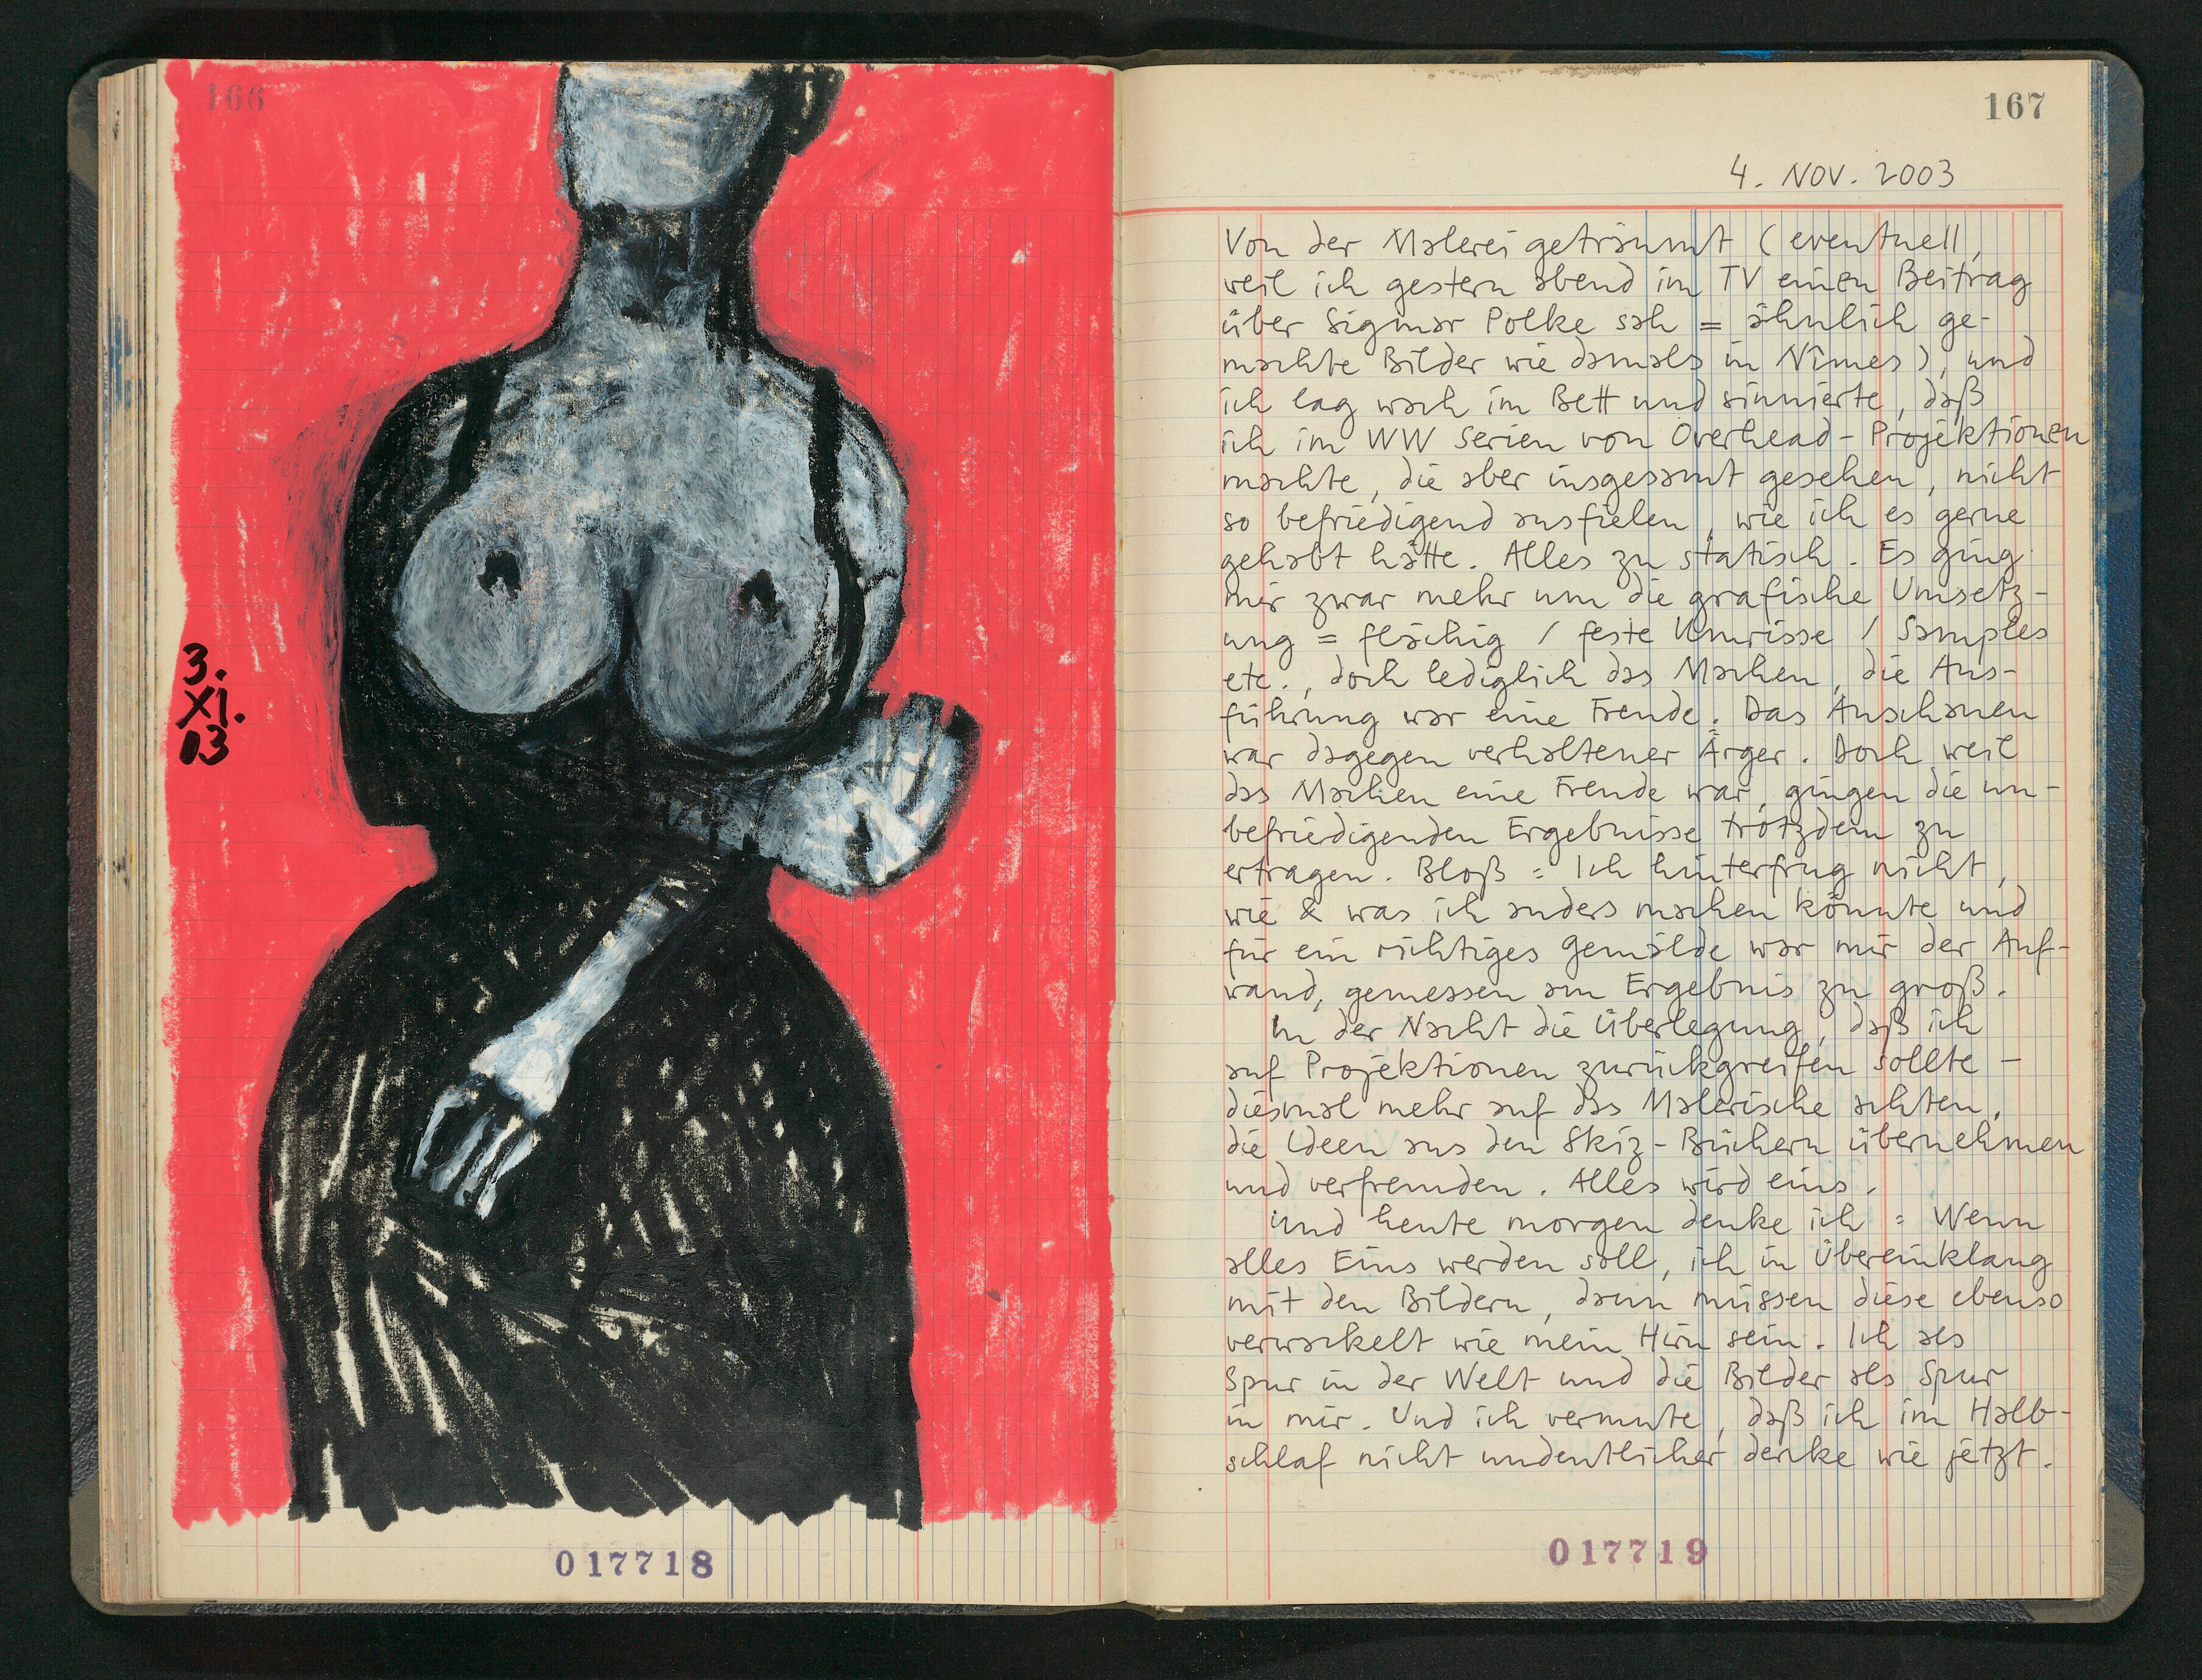 166
3.
XI.
03
017718
167
4. NOV. 2003
Von der Malerei geträumt (eventuell,
weil ich gestern abend im TV einen Beitrag
über Sigmar Polke sah = ähnlich ge-
machte Bilder wie damals in Nîmes), und
ich lag wach im Bett und sinnierte, daß
ich im WW Serien von Overhead-Projektionen
machte, die aber insgesamt gesehen, nicht
so befriedigend ausfielen, wie ich es gerne
gehabt hätte. Alles zu statisch. Es ging
mir zwar mehr um die grafische Umsetz-
ung = flächig / feste Umrisse / Samples
etc., doch lediglich das Machen, die Aus-
führung war eine Freude. Das Anschauen
war dagegen verhaltener Ärger. Doch weil
das Machen eine Freude war, gingen die un-
befriedigenden Ergebnisse trotzdem zu
ertragen. Bloß = Ich hinterfrug nicht,
wie & was ich anders machen könnte und
für ein richtiges Gemälde war mir der Auf-
wand, gemessen am Ergebnis zu groß.
In der Nacht die Überlegung, daß ich
auf Projektionen zurückgreifen sollte –
diesmal mehr auf das Malerische achten,
die Ideen aus den Skiz-Büchern übernehmen
und verfremden. Alles wird eins.
Und heute morgen denke ich = Wenn
alles Eins werden soll, ich in Übereinklang
mit den Bildern, dann müssen diese ebenso
verwackelt wie mein Hirn sein. Ich als
Spur in der Welt und die Bilder als Spur
in mir. Und ich vermute, daß ich im Halb-
schlaf nicht undeutlicher denke wie jetzt.
017719